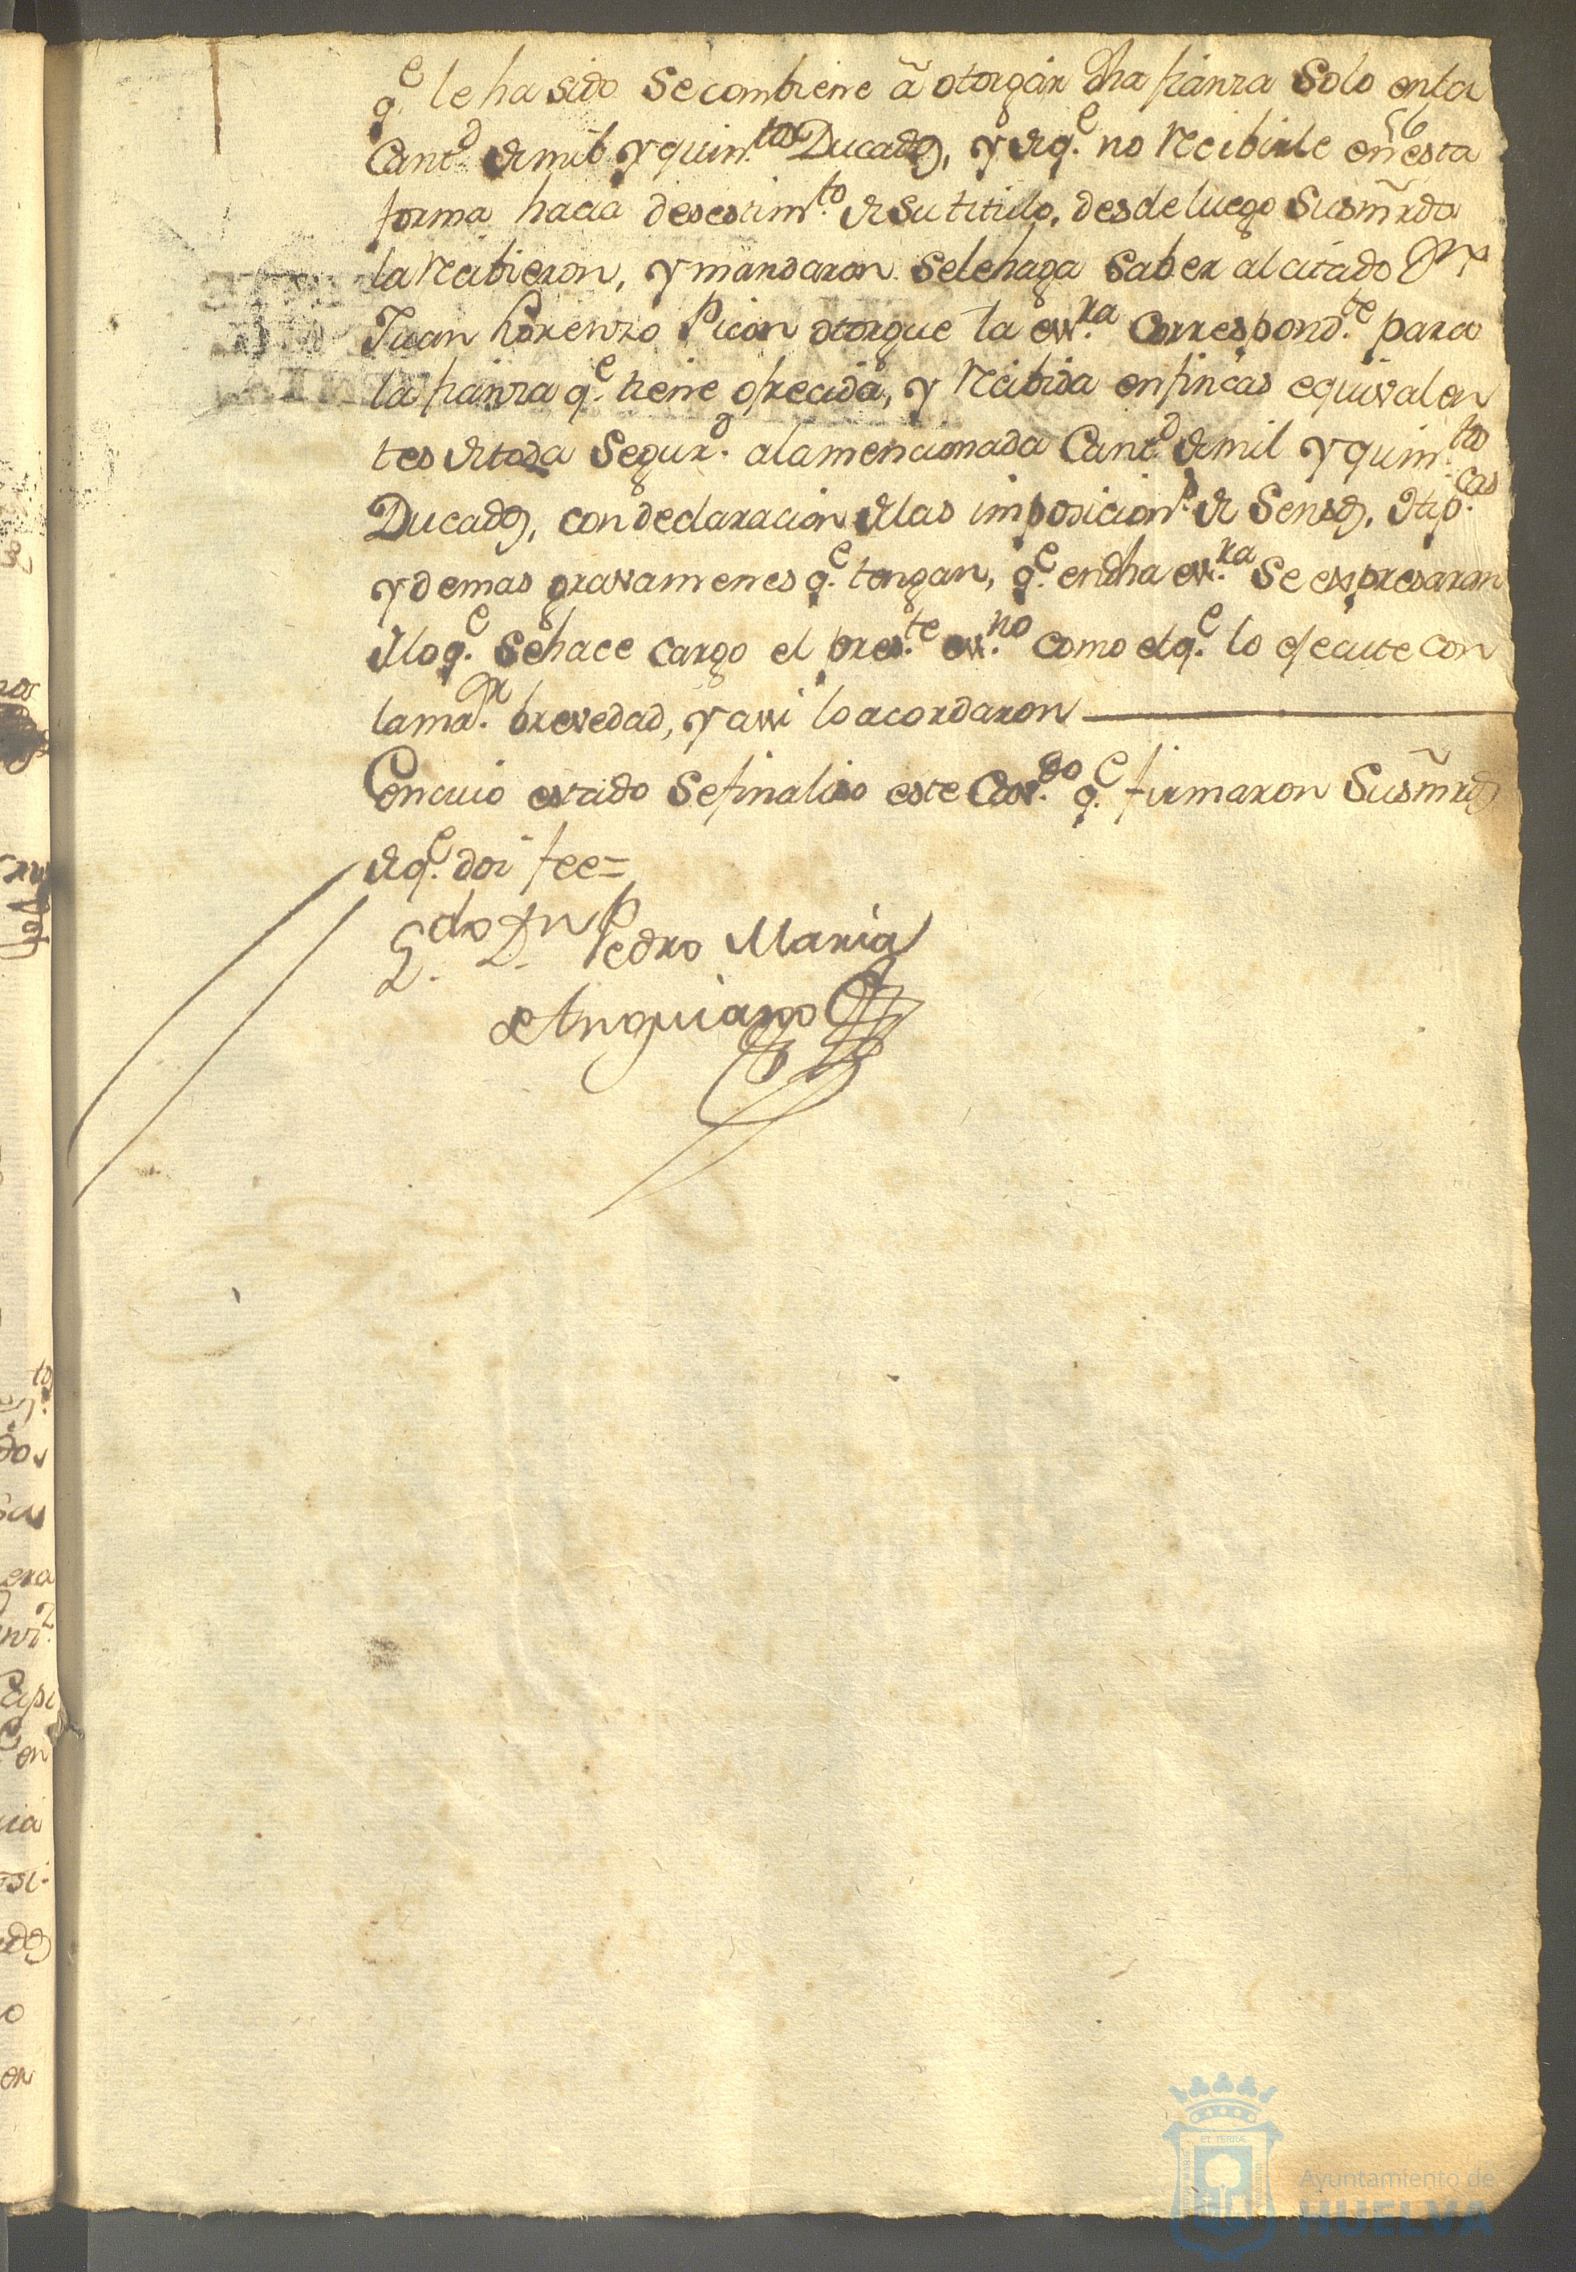 q.e le ha sido se combiene â otorgàr dha fianza solo en la
56
Cant.d de mil y quin.tos Ducados, y de q.e no recibirle en esta
forma hacia desestim.to de su titulo, desde luego Susm̃rds
la recibieron, y mandaron se le haga saber al citado Dn
Juan Lorenzo Picon otorgue la ess.ra correspond.te para
la fianza q.e tiene ofrecida, y recibida en fincas equivalen
tes de toda segur.d a la mencionada Cant.d de mil y quin.tos
Ducados, con declaracion de las imposicion.s de Sensos, Hip.cas
y demas gravamenes q.e tengan, q.e en dha ess.ra se expresaran
de lo q.e se hace cargo el pres.te ess.no como de q.e lo ejecute con
la ma.or brevedad, y assi lo acordaron
En cuio estado se finaliso este Cav.do q.e firmaron Susm̃rds
de q.e doi fee=
L.do D.n Pedro Maria
de Anguiano
Ayuntamiento de
HUELVA